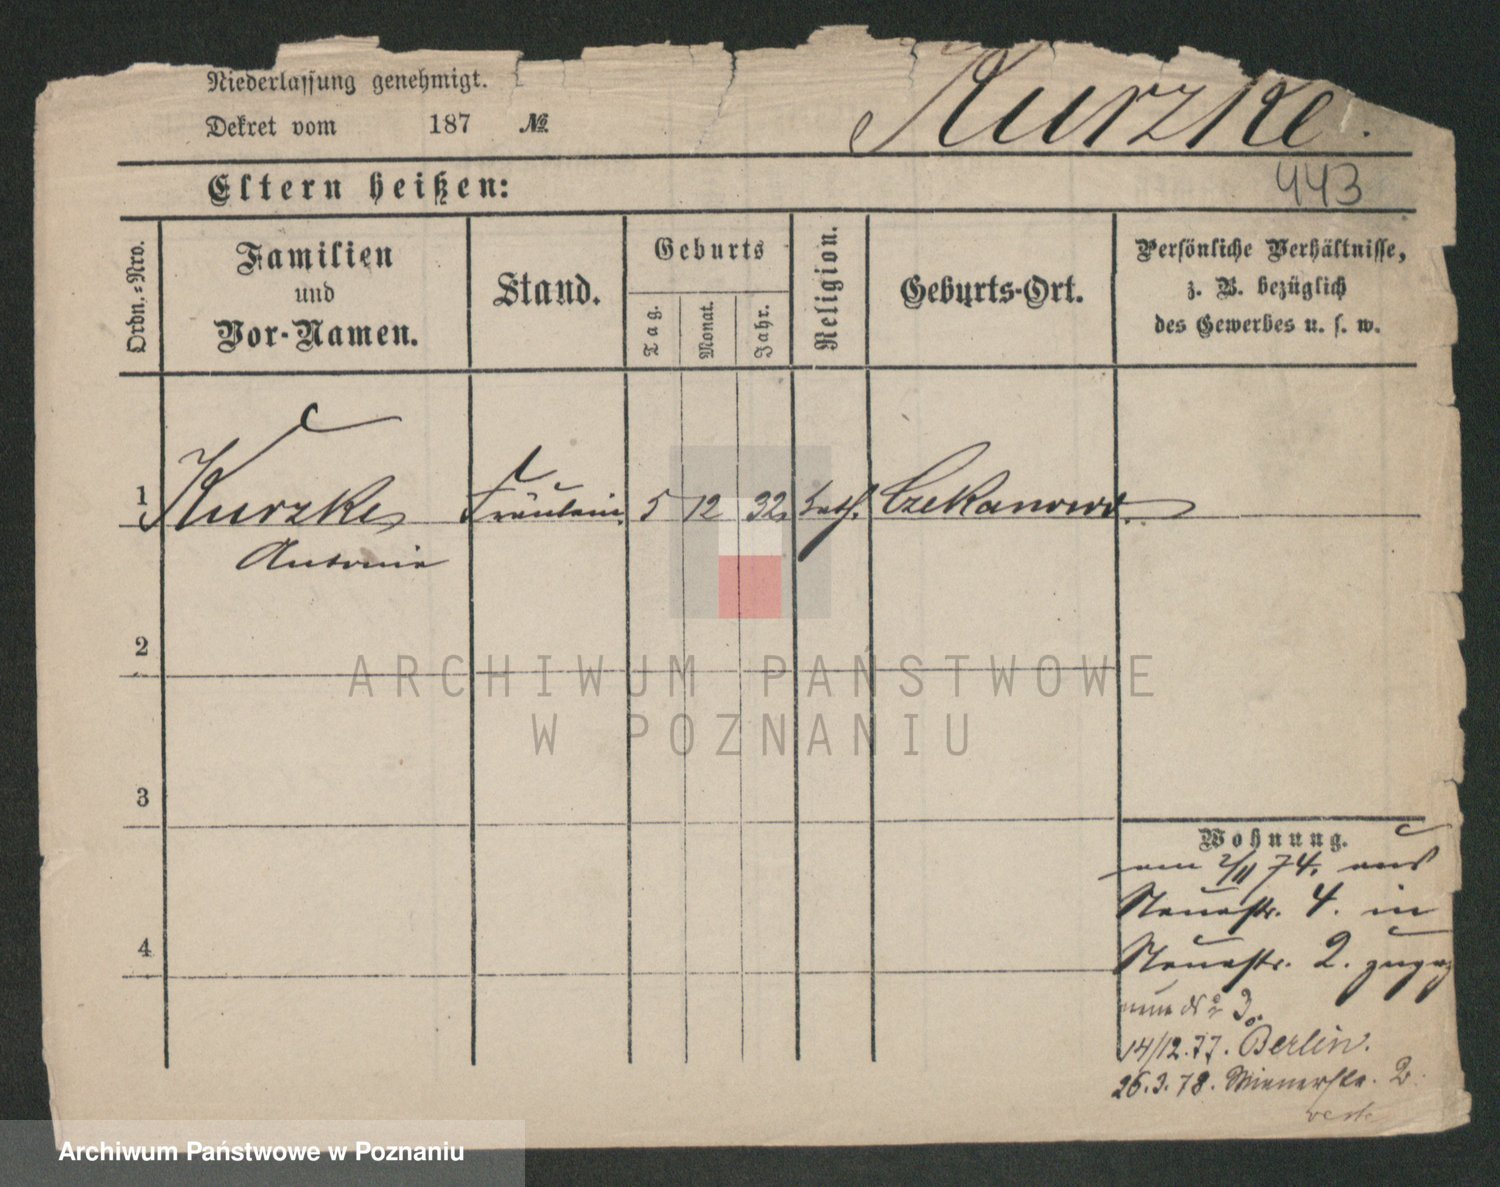 Niederlassung genehmigt.
Dekret vom 187 №
Kurzke.
Eltern heißen:
443
Ordn.-Nro.
Familien
und
Vor-Namen.
Stand.
Geburts
Tag.
Monat.
Jahr.
Religion.
Geburts-Ort.
Persönliche Verhältnisse,
z. B. bezüglich
des Gewerbes u. s. w.
1 Kurzke Fräulein 5 12 32 kath. Czekanowo
Antonie
2
3
4
Wohnung.
am 2/11 74. aus
Neuestr. 4. in
Neuestr. 2. gezog
14/12.77. Berlin.
26.3.78. Wienerstr. 2.
ARCHIWUM PAŃSTWOWE
W POZNANIU
Archiwum Państwowe w Poznaniu